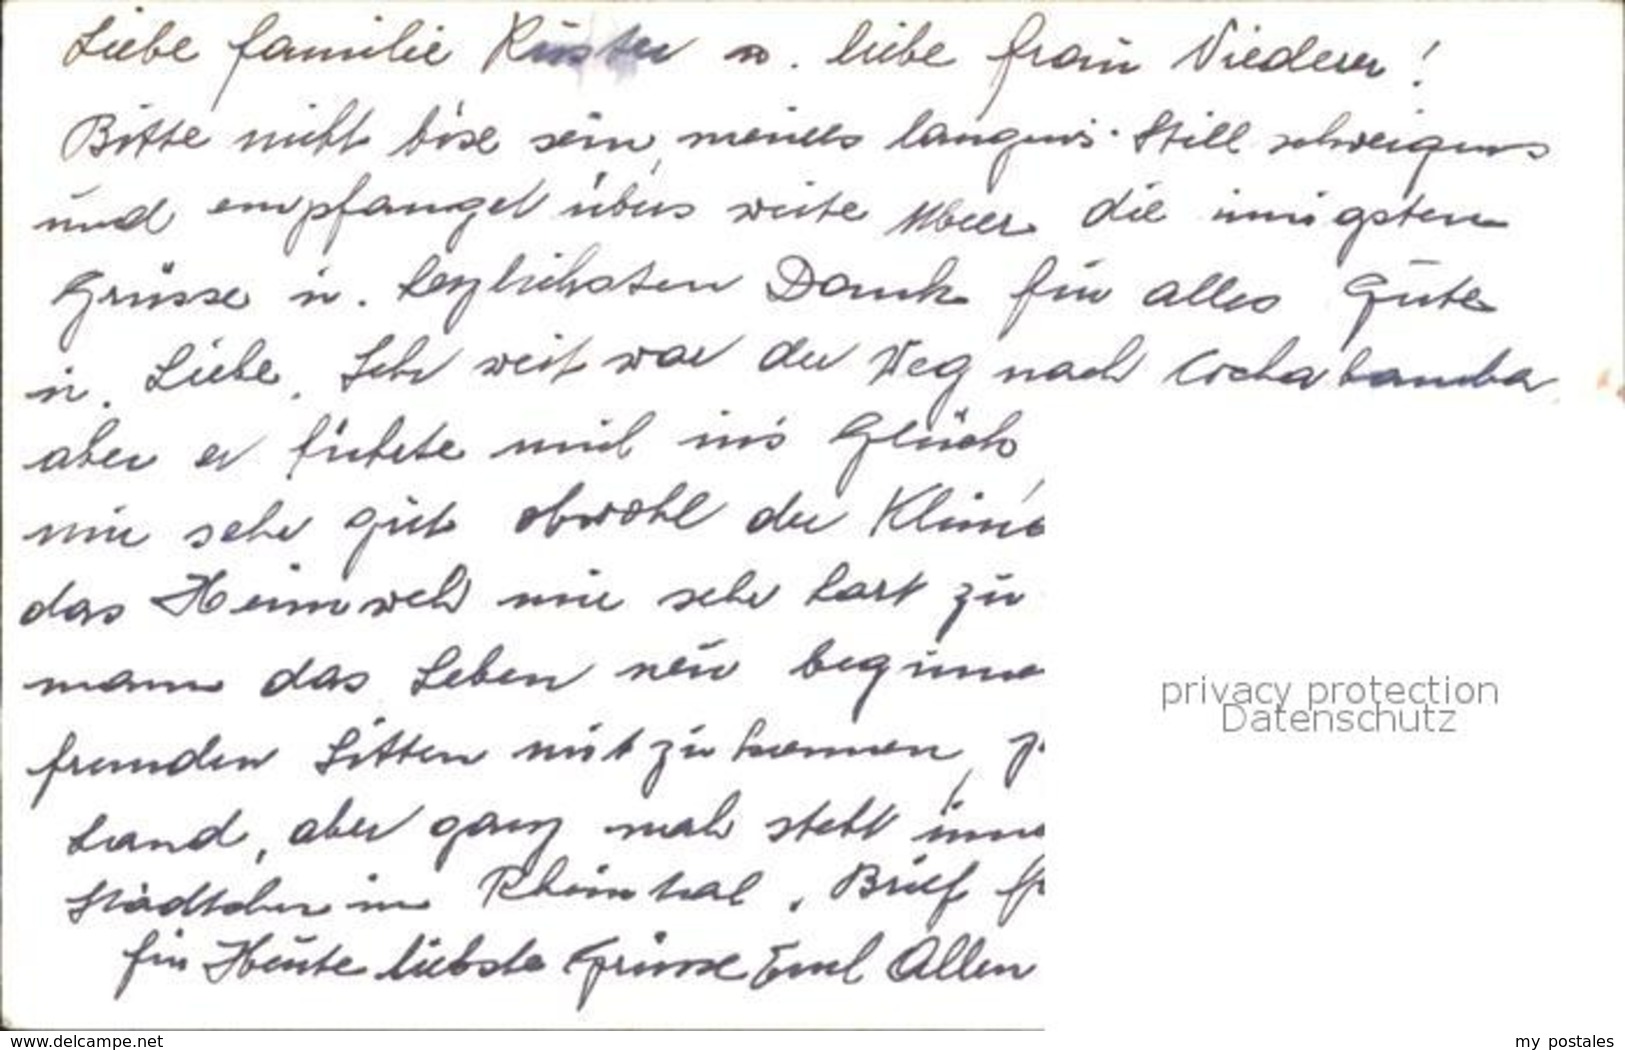 Liebe familie Küster u. liebe frau Niederer!
Bitte nicht böse sein, meines langens Still schweigens
und empfanget übers weite Meer die innigsten
Grüsse u. herzlichsten Dank für alles Gute
u. Liebe. Sehr weit war der Weg nach Cochabamba
aber er führte mich ins Glück,
mir sehr gut obwohl der Klima
das Heimweh mir sehr hart zu
mann das Leben neu beginne
fremden Sitten mit zu kennen,
Land, aber ganz nah steht imm
Städtchen im Rheinthal. Brief
für Heute liebste Grüsse Euch Allen
privacy protection
Datenschutz
www.delcampe.net
my_postales